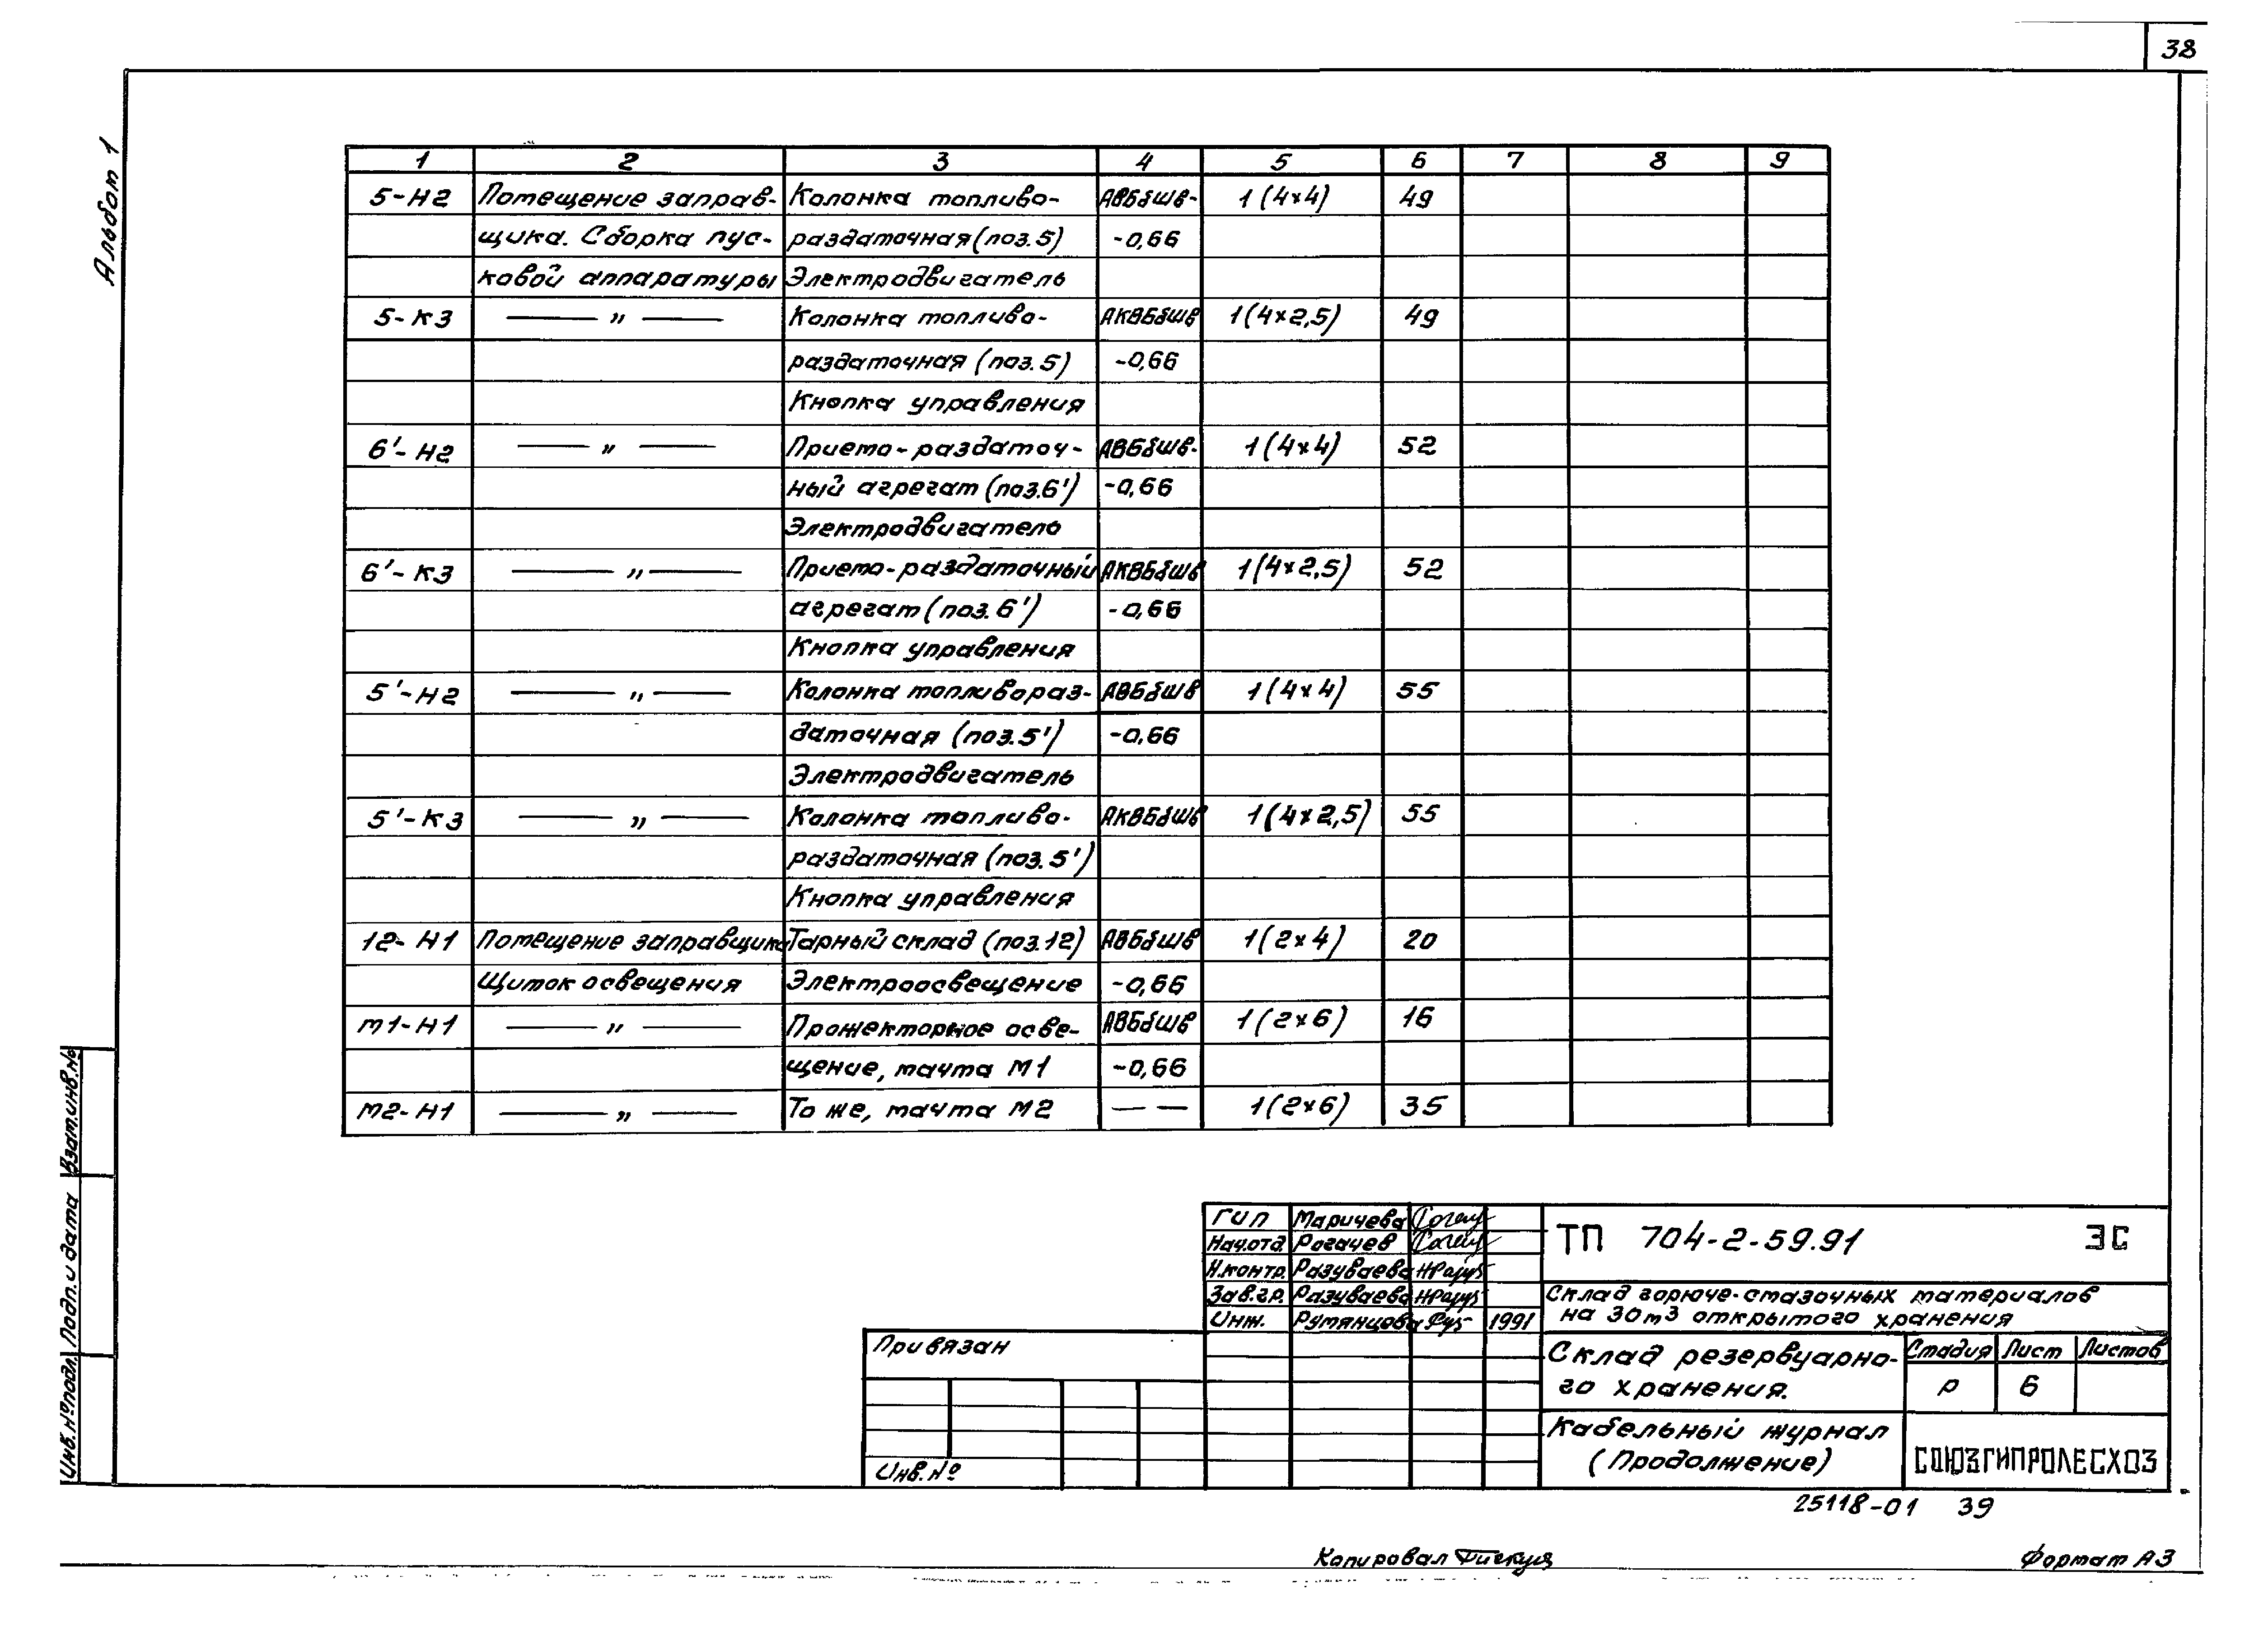 38
Альбом 1
1 2 3 4 5 6 7 8 9
5-Н2 Помещение заправ- Колонка топливо- АВБбШв- 1(4×4) 49
щика. Сборка пус- раздаточная (поз. 5) -0,66
ковой аппаратуры Электродвигатель
5-К3 — " — Колонка топливо- АКВБбШв 1(4×2,5) 49
раздаточная (поз. 5) -0,66
Кнопка управления
6'-Н2 — " — Приемо-раздаточ- АВБбШв- 1(4×4) 52
ный агрегат (поз.6') -0,66
Электродвигатель
6'-К3 — " — Приемо-раздаточный АКВБбШв 1(4×2,5) 52
агрегат (поз. 6') -0,66
Кнопка управления
5'-Н2 — " — Колонка топливораз- АВБбШв 1(4×4) 55
даточная (поз.5') -0,66
Электродвигатель
5'-К3 — " — Колонка топливо- АКВБбШв 1(4×2,5) 55
раздаточная (поз. 5')
Кнопка управления
12-Н1 Помещение заправщика Тарный склад (поз.12) АВБбШв 1(2×4) 20
Щиток освещения Электроосвещение -0,66
М1-Н1 — " — Прожекторное осве- АВБбШв 1(2×6) 16
щение, мачта М1 -0,66
М2-Н1 — " — То же, мачта М2 — — 1(2×6) 35
Взам.инв.№
Подп. и дата
Инв.№подл.
ГИП Маричева
Нач.отд. Рогачев
Н.контр. Разуваева
Зав.гр. Разуваева
Инж. Румянцова 1991
ТП 704-2-59.91 ЭС
Склад горюче-смазочных материалов
на 30м3 открытого хранения
Привязан
Инв.№
Склад резервуарно-
го хранения.
Стадия Лист Листов
Р 6
Кабельный журнал
(Продолжение)
СОЮЗГИПРОЛЕСХОЗ
25118-01 39
Копировал
Формат А3